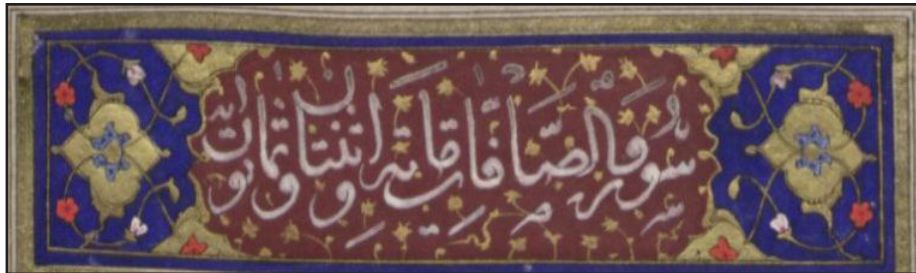 سورة والصّافّات ماية واثنتان وثمانون اية